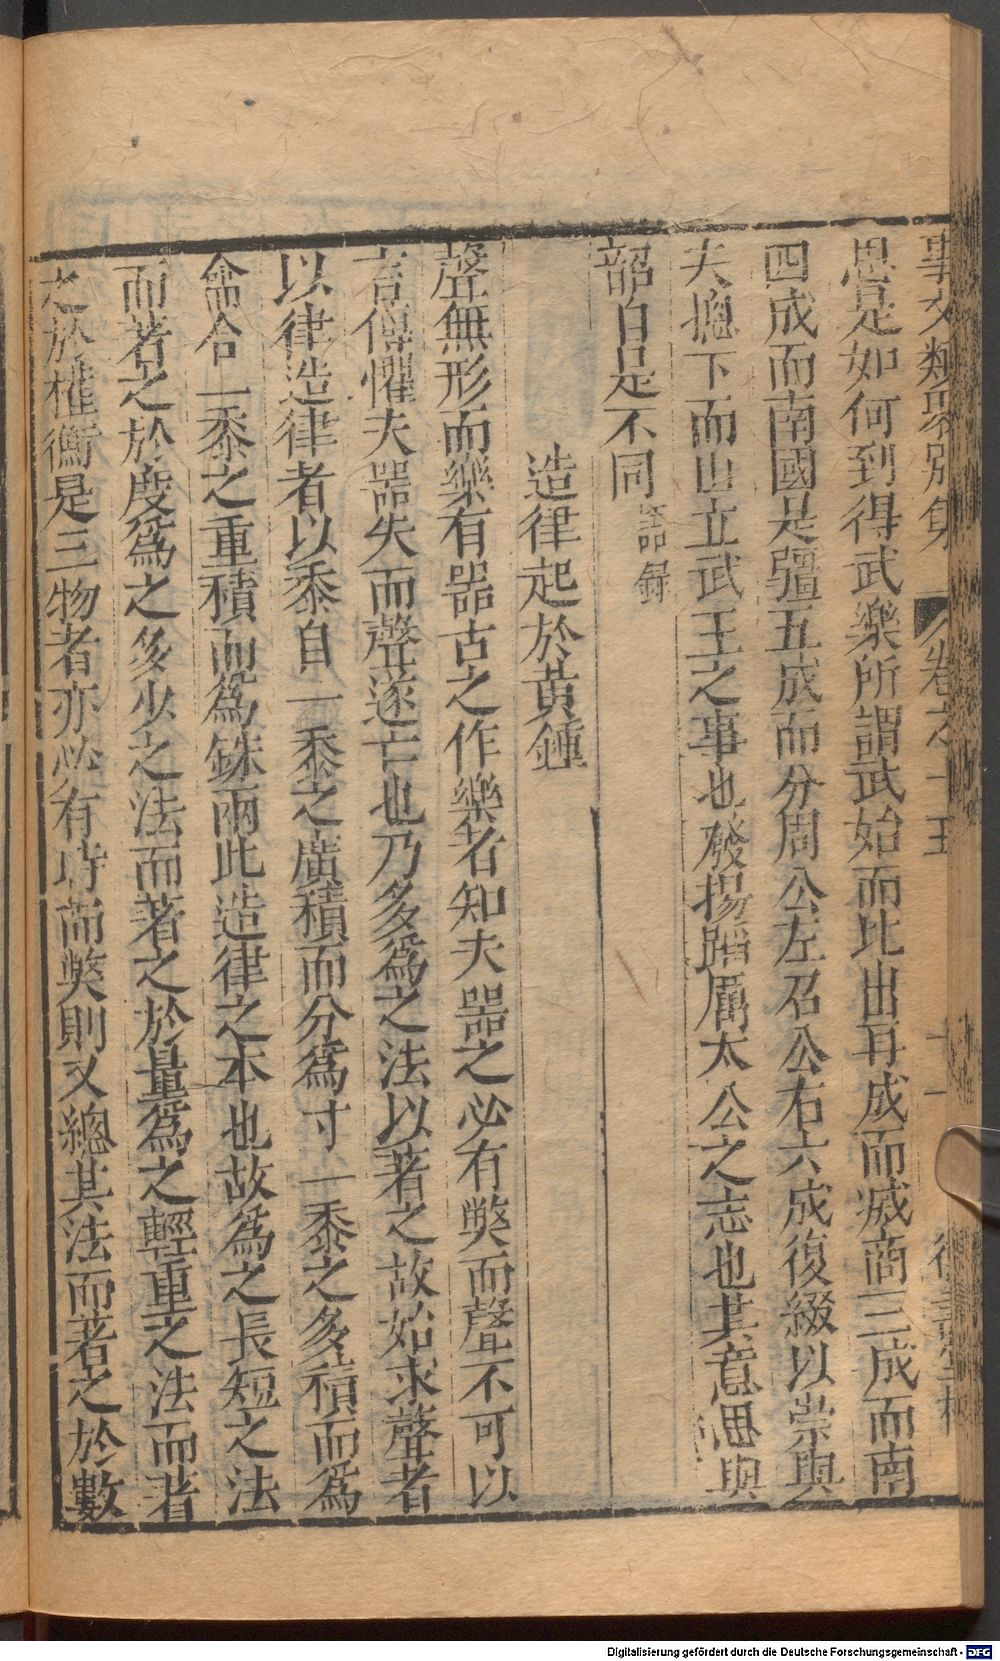 事文類聚別集 卷之十五 十一
思是如何到得武樂所謂武始而北出再成而滅商三成而南
四成而南國是疆五成而分周公左召公右六成復綴以崇與
夫摠下而山立武王之事也發揚蹈厲太公之志也其意思與
韶自是不同 語錄
造律起於黃鍾
聲無形而樂有器古之作樂者知夫器之必有獘而聲不可以
言傳懼夫器失而聲遂亡也乃多爲之法以著之故始求聲者
以律造律者以黍自一黍之廣積而分爲寸一黍之多積而爲
龠合一黍之重積而爲銖兩此造律之本也故爲之長短之法
而著之於度爲之多少之法而著之於量爲之輕重之法而著
之於權衡是三物者亦必有時而獘則又總其法而著之於數
Digitalisierung gefördert durch die Deutsche Forschungsgemeinschaft - DFG